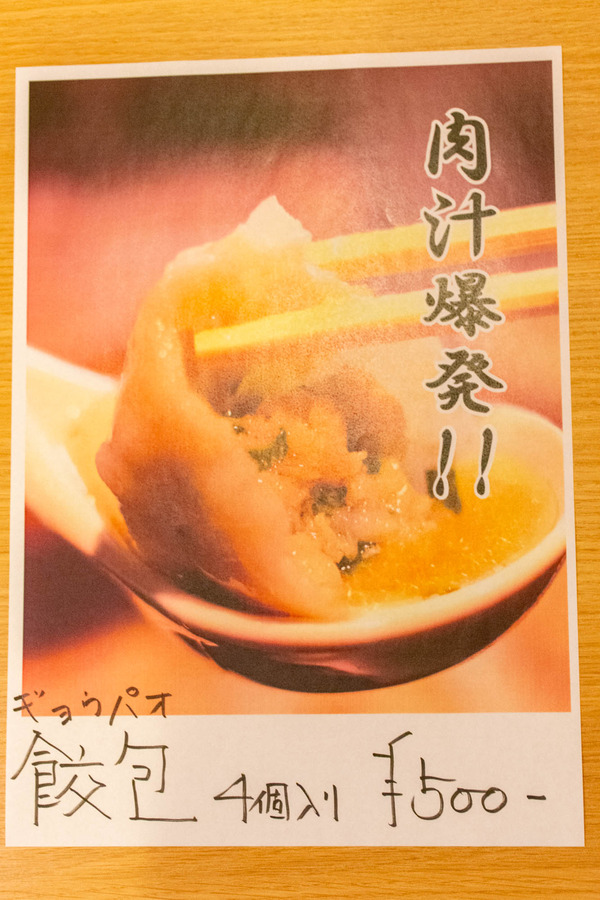 肉汁爆発!!
ギョウパオ
餃包 4個入り ¥500-